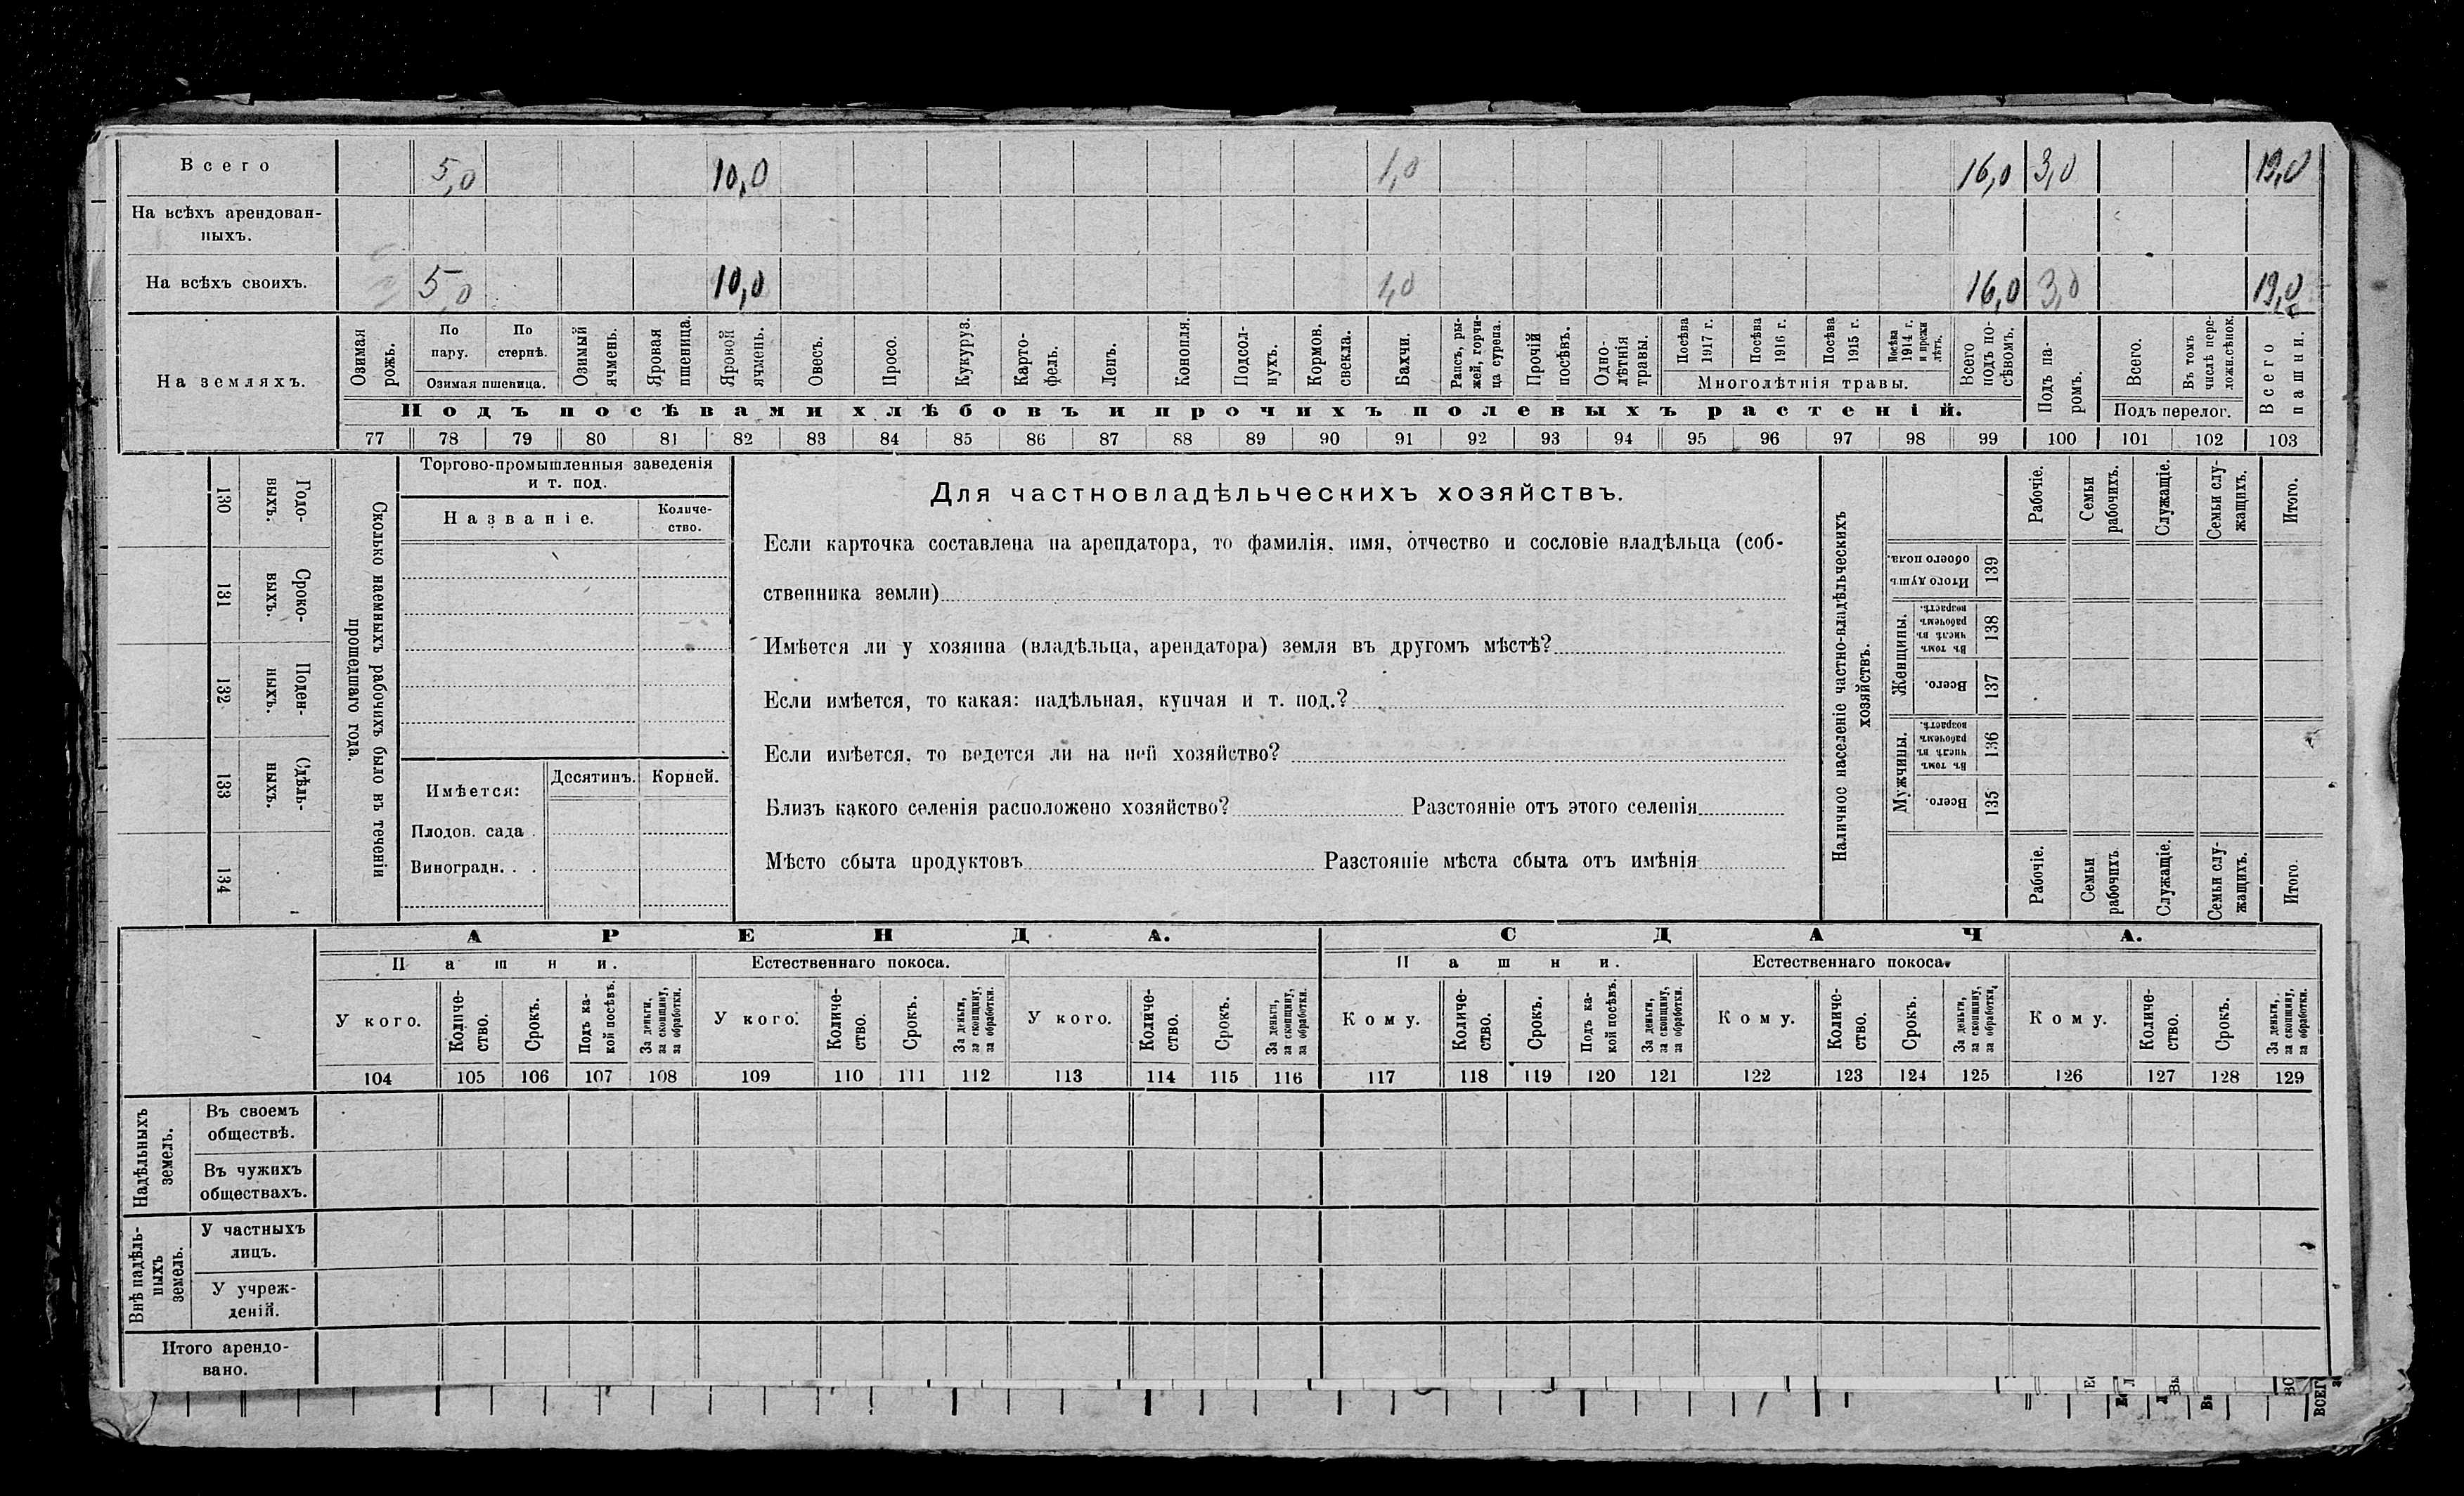 Всего 5,0 10,0 1,0 16,0 3,0 19,0
На всѣхъ арендован-
ныхъ.
На всѣхъ своихъ. 5,0 10,0 1,0 16,0 3,0 19,0
На земляхъ.
Озимая рожь.
По пару.
По стернѣ.
Озимая пшеница.
Озимый ячмень.
Яровая пшеница.
Яровой ячмень.
Овесъ.
Просо.
Кукуруз.
Карто-
фель.
Ленъ.
Конопля.
Подсол-
нухъ.
Кормов.
свекла.
Бахчи.
Рапсъ, ры-
жей, горчи-
ца сурепа.
Прочій
посѣвъ.
Одно-
лѣтнія
травы.
Посѣва
1917 г.
Посѣва
1916 г.
Посѣва
1915 г.
Посѣва
1914 г.
и прежн
лѣтъ.
Многолѣтнія травы.
Всего
подъ по-
сѣвомъ.
Подъ па-
ромъ.
Всего.
Въ томъ
числѣ пере-
ложн.сѣнок.
Подъ перелог.
Всего
пашни.
Подъ посѣвами хлѣбовъ и прочихъ полевыхъ растеній.
77 78 79 80 81 82 83 84 85 86 87 88 89 90 91 92 93 94 95 96 97 98 99 100 101 102 103
Сколько наемныхъ рабочихъ было въ теченіи
прошедшаго года.
Годо-
выхъ.
130
Сроко-
выхъ.
131
Поден-
ныхъ.
132
Сдѣль-
ныхъ.
133
134
Торгово-промышленныя заведенія
и т. под.
Названіе.
Количе-
ство.
Имѣется:
Десятинъ.
Корней.
Плодов. сада .
Виноградн. . .
Для частновладѣльческихъ хозяйствъ.
Если карточка составлена на арендатора, то фамилія, имя, отчество и сословіе владѣльца (соб-
ственника земли)
Имѣется ли у хозяина (владѣльца, арендатора) земля въ другомъ мѣстѣ?
Если имѣется, то какая: надѣльная, купчая и т. под.?
Если имѣется, то ведется ли на ней хозяйство?
Близъ какого селенія расположено хозяйство? Разстояніе отъ этого селенія
Мѣсто сбыта продуктовъ Разстояніе мѣста сбыта отъ имѣнія
Наличное населеніе частно-владѣльческихъ
хозяйствъ.
Рабочіе.
Семьи
рабочихъ.
Служащіе.
Семьи слу-
жащихъ.
Итого.
Итого душъ
обоего пола.
139
Женщины.
Въ томъ
числѣ въ
рабочемъ
возрастѣ.
138
Всего.
137
Мужчины.
Въ томъ
числѣ въ
рабочемъ
возрастѣ.
136
Всего.
135
Рабочіе.
Семьи
рабочихъ
Служащіе.
Семьи слу-
жащихъ.
Итого.
АРЕНДА.
СДАЧА.
Пашни.
Естественнаго покоса.
Пашни.
Естественнаго покоса.
У кого.
Количе-
ство.
Срокъ.
Подъ ка-
кой посѣвъ.
За деньги,
за скопщину,
за обработки.
У кого.
Количе-
ство.
Срокъ.
За деньги,
за скопщину,
за обработки.
У кого.
Количе-
ство.
Срокъ.
За деньги,
за скопщину,
за обработки.
Кому.
Количе-
ство.
Срокъ.
Подъ ка-
кой посѣвъ.
За деньги,
за скопщину,
за обработки.
Кому.
Количе-
ство.
Срокъ.
За деньги,
за скопщину,
за обработки.
Кому.
Количе-
ство.
Срокъ.
За деньги,
за скопщину,
за обработки.
104 105 106 107 108 109 110 111 112 113 114 115 116 117 118 119 120 121 122 123 124 125 126 127 128 129
Надѣльныхъ
земель.
Въ своемъ
обществѣ.
Въ чужихъ
обществахъ.
Внѣ надѣль-
ныхъ
земель.
У частныхъ
лицъ.
У учреж-
деній.
Итого арендо-
вано.